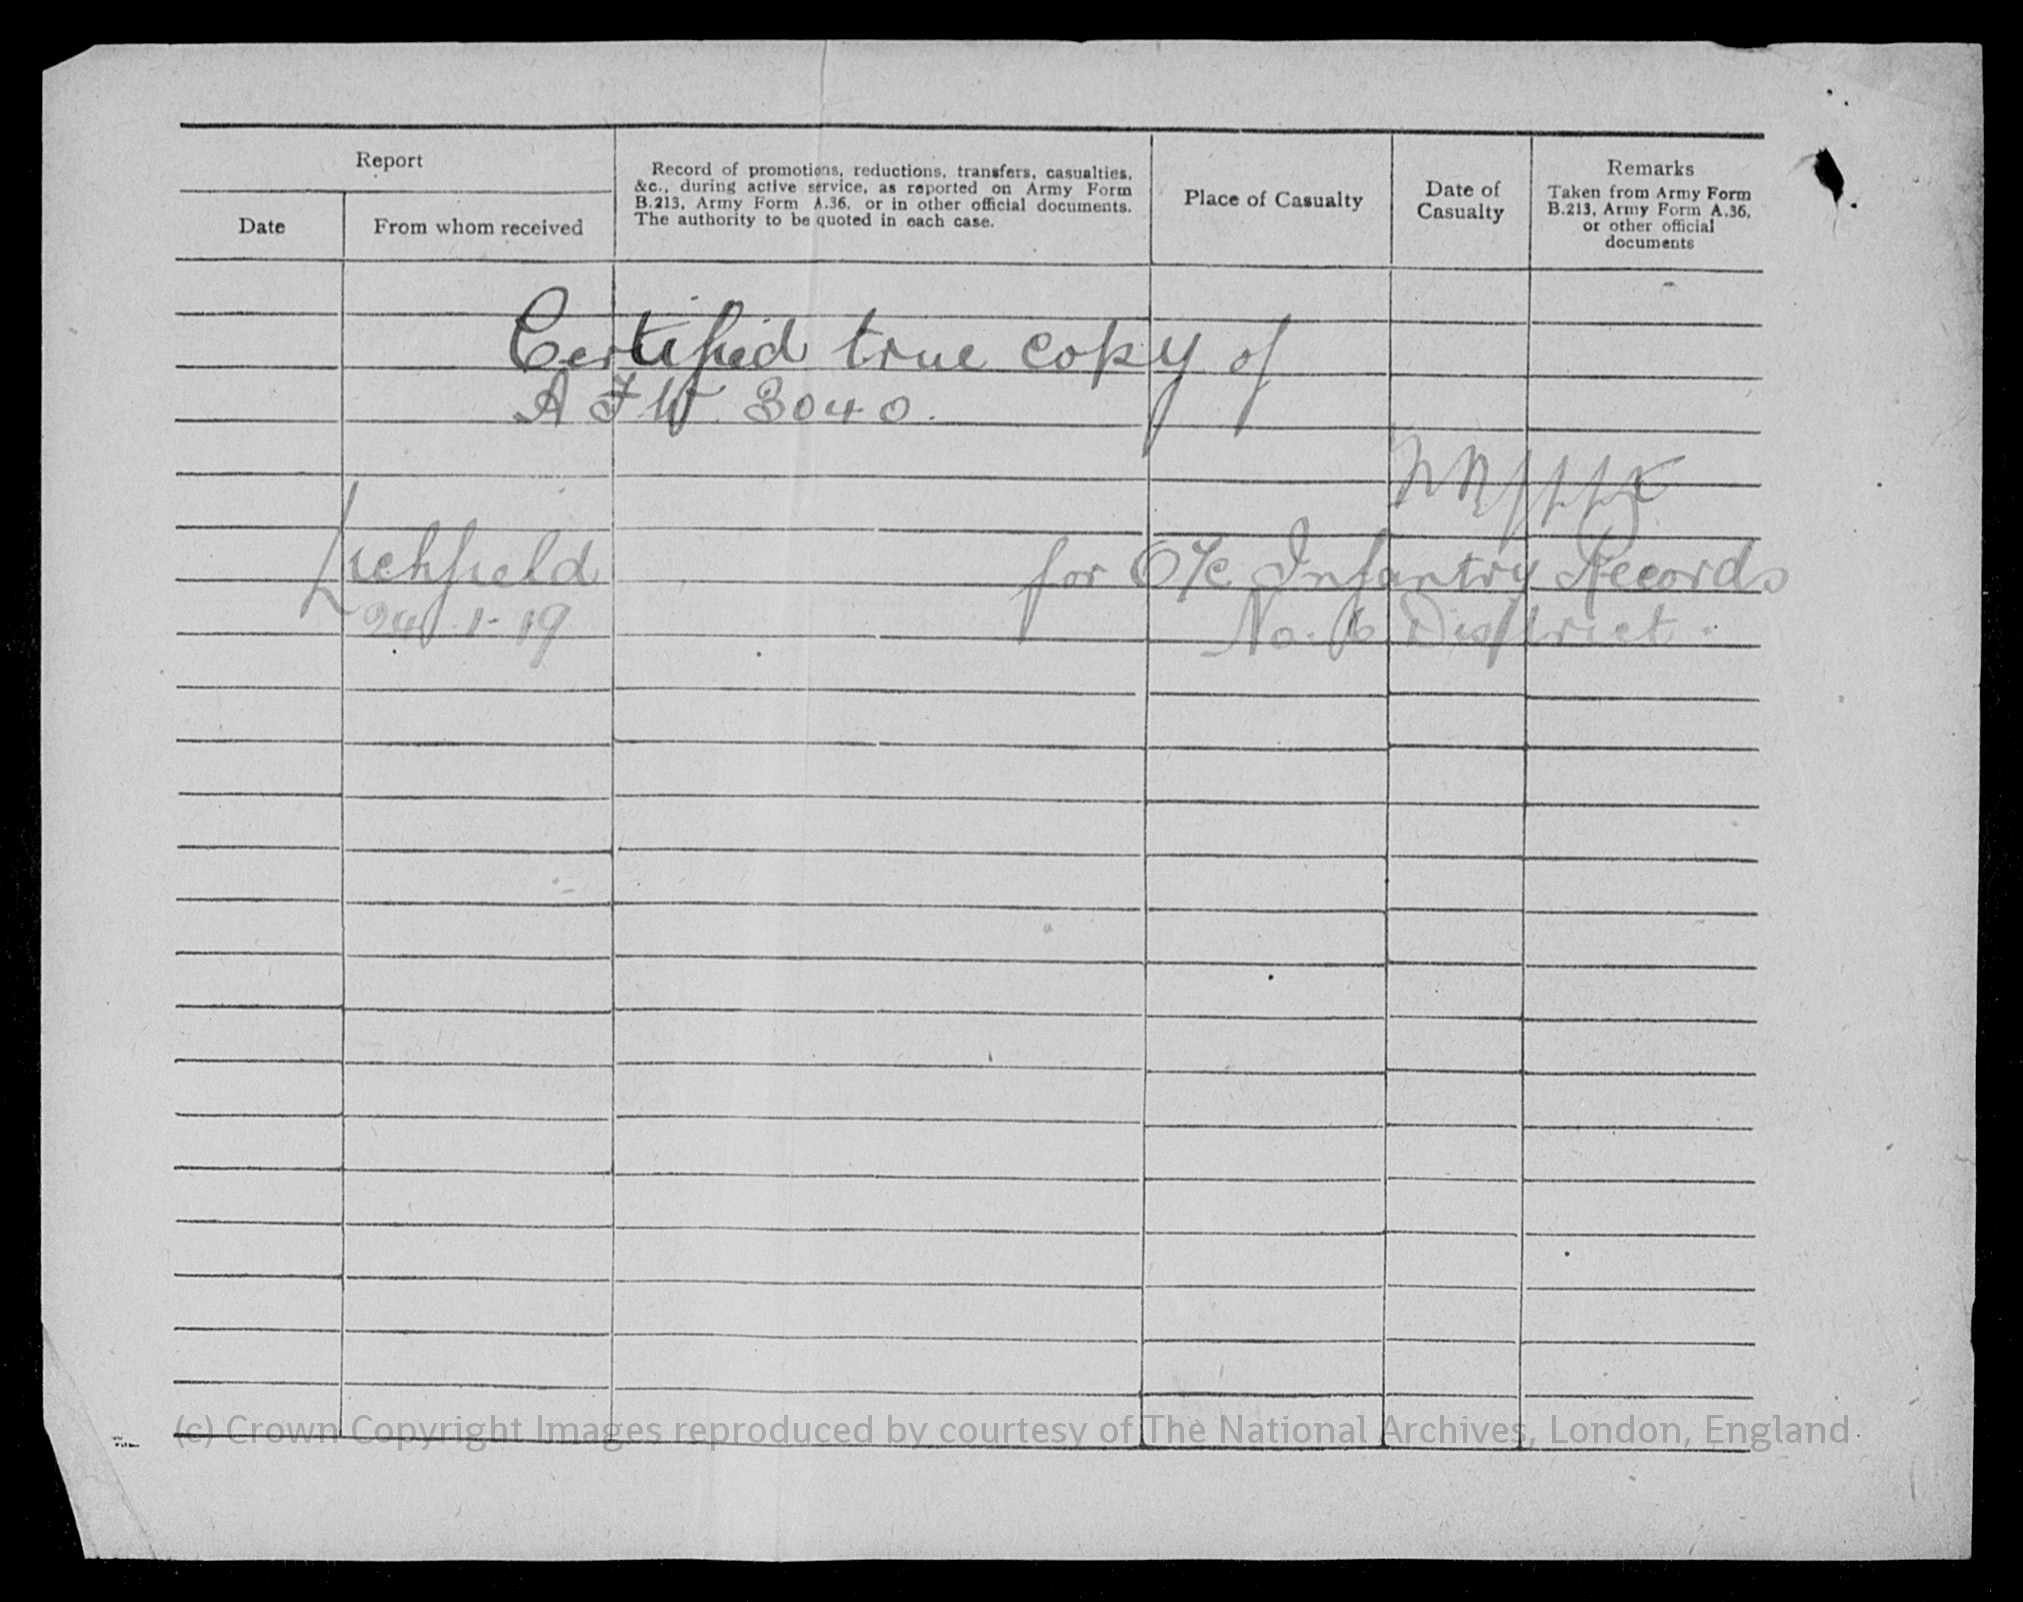 Report
Date
From whom received
Record of promotions, reductions, transfers, casualties,
&c., during active service, as reported on Army Form
B.213, Army Form A.36, or in other official documents.
The authority to be quoted in each case.
Place of Casualty
Date of
Casualty
Remarks
Taken from Army Form
B.213, Army Form A.36,
or other official
documents
Certified true copy of
A F W. 3040.
Lichfield
24-1-19
for O/c Infantry Records
No. 6 District.
(c) Crown Copyright Images reproduced by courtesy of The National Archives, London, England.